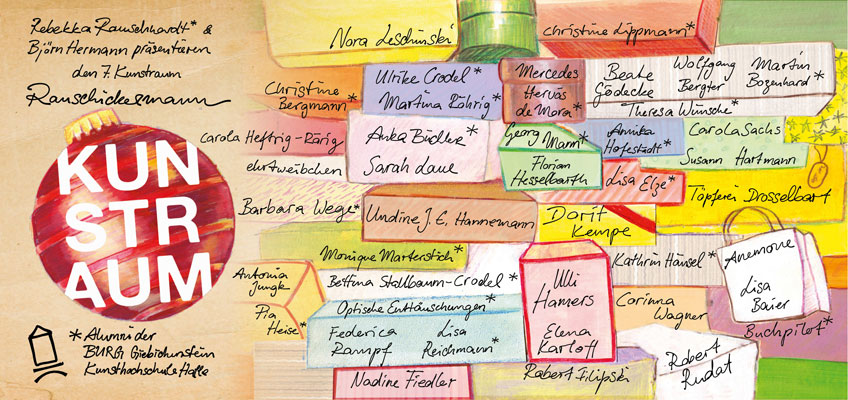 Rebekka Rauschhardt* &
Björn Hermann präsentieren
den 7. Kunstraum
Rauschickermann
KUN
STR
AUM
* Alumni der
BURG Giebichenstein
Kunsthochschule Halle
Nora Leschinski
Christine Lippmann*
Christine
Bergmann*
Ulrike Crodel*
Martina Röhrig*
Mercedes
Hervás
de Mora*
Beate
Gödecke
Wolfgang
Bergter
Martin
Bozenhard*
Theresa Wünsche*
Carola Helfrig-Rärig
ehrtweibchen
Anka Büchler*
Sarah Laue
Georg
Mann*
Florian
Hesselbarth
Annika
Hofestädt*
Carola Sachs
Susann Hartmann
Lisa Elze*
Töpferei Drosselbart
Barbara Wege*
Undine J. E. Hannemann
Dorit
Kempe
Monique Marterstich*
Kathrin Hänsel*
Anemone
Lisa
Baier
Antonia
Jungk
Pia
Heise*
Bettina Stallbaum-Crodel*
Optische Enttäuschungen*
Federica
Rampf
Lisa
Reichmann*
Ulli
Hamers
Elena
Karloff
Corinna
Wagner
Buchpilot*
Nadine Fiedler
Robert Filipski
Robert
Rudat